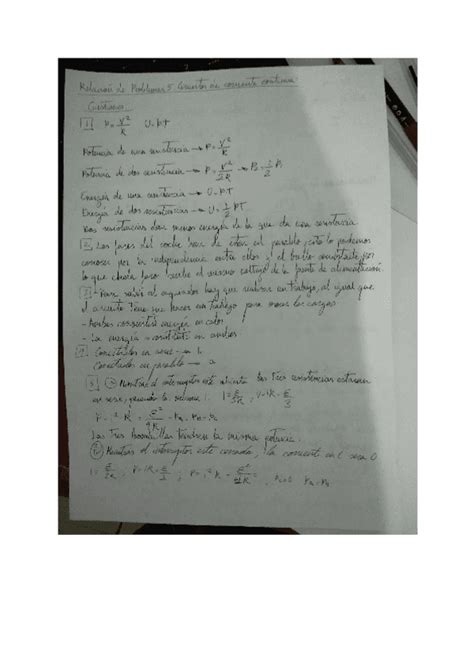 Relación de Problemas 5 Circuitos de corriente continua
Cuestiones
1 P = V²/R U = P·t
Potencia de una resistencia → P = V²/R
Potencia de dos resistencias → P = V²/2R → P₂ = 1/2 P₁
Energía de una resistencia → U = P·T
Energía de dos resistencias → U = 1/2 PT
Dos resistencias dan menos energía de la que da una resistencia.
2 Los faros del coche han de estar en paralelo, esto lo podemos
conocer por la independencia entre ellos y el brillo constante, por
lo que cada faro recibe el mismo voltaje de la fuente de alimentación.
3 - Para subir al hay que realizar un trabajo, al igual que
el circuito tiene que hacer un trabajo para mover las cargas
- Ambos energía en calor
- La energía en ambos
Conectadas en serie → b
Conectadas en paralelo → a
Mientras el interruptor esté abierto las tres resistencias estarán
en serie,
Las tres bombillas tendrán la misma potencia.
Mientras el interruptor esté cerrado, la corriente en C será 0